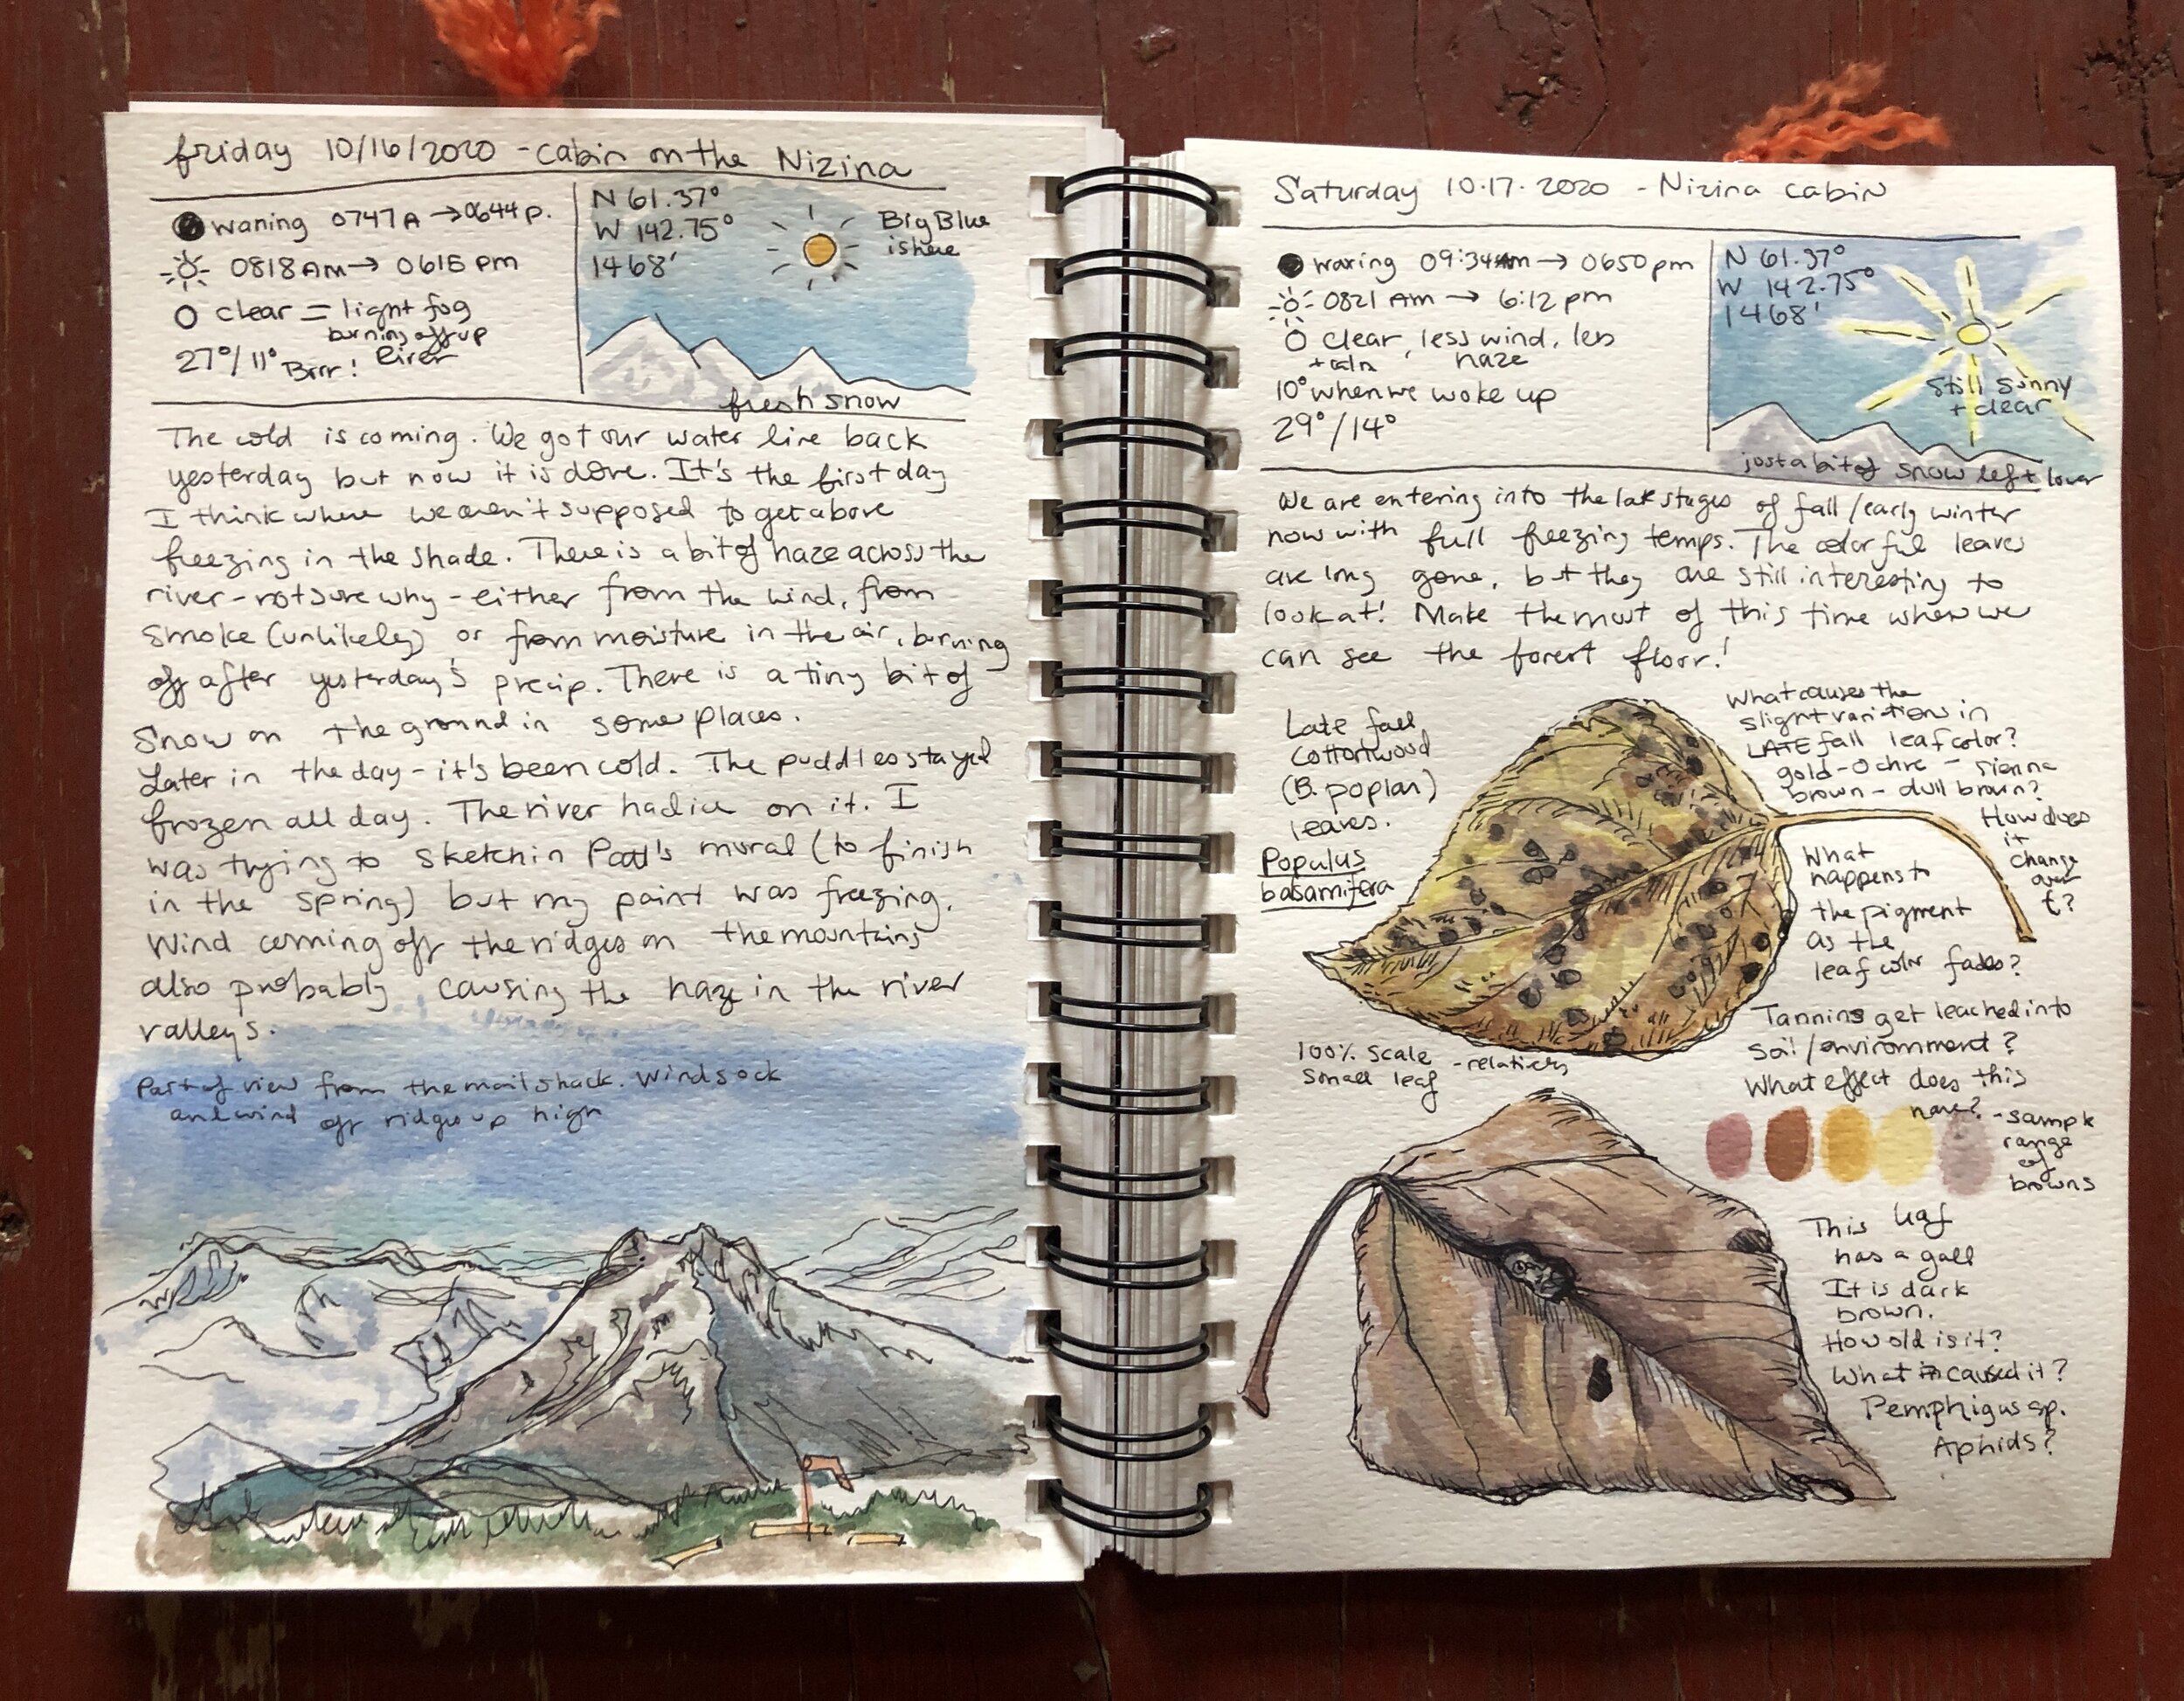 friday 10/16/2020 - cabin on the Nizina
waning 0747 A → 0644 p.
0818 Am → 0615 pm
clear = light fog
burning off up
River
27°/11° Brrr!
N 61.37°
W 142.75°
1468'
Big Blue
is here
fresh snow
The cold is coming. We got our water line back
yesterday but now it is done. It's the first day
I think where we aren't supposed to get above
freezing in the shade. There is a bit of haze across the
river - not sure why - either from the wind, from
smoke (unlikely) or from moisture in the air, burning
off after yesterday's precip. There is a tiny bit of
snow on the ground in some places.
Later in the day - it's been cold. The puddles stayed
frozen all day. The river had ice on it. I
was trying to sketch in Patt's mural (to finish
in the spring) but my paint was freezing.
Wind coming off the ridges on the mountains
also probably causing the haze in the river
valleys.
Part of view from the mail shack. Windsock
and wind off ridges up high
Saturday 10.17.2020 - Nizina cabin
waxing 09:34 Am → 0650 pm
0821 Am → 6:12 pm
clear, less wind, less
+ calm haze
10° when we woke up
29°/14°
N 61.37°
W 142.75°
1468'
Still sunny
+ clear
just a bit of snow left lower
We are entering into the late stages of fall/early winter
now with full freezing temps. The colorful leaves
are long gone, but they are still interesting to
look at! Make the most of this time when we
can see the forest floor!
Late fall
Cottonwood
(B. poplar)
leaves.
Populus
balsamifera
What causes the
slight variations in
LATE fall leaf color?
gold - ochre - sienna
brown - dull brown?
How does
it
change
over
t?
What
happens to
the pigment
as the
leaf color fades?
100% scale - relatively
small leaf
Tannins get leached into
soil/environment?
What effect does this
have?
- sample
range
of
browns
This leaf
has a gall
It is dark
brown.
How old is it?
What caused it?
Pemphigus sp.
Aphids?